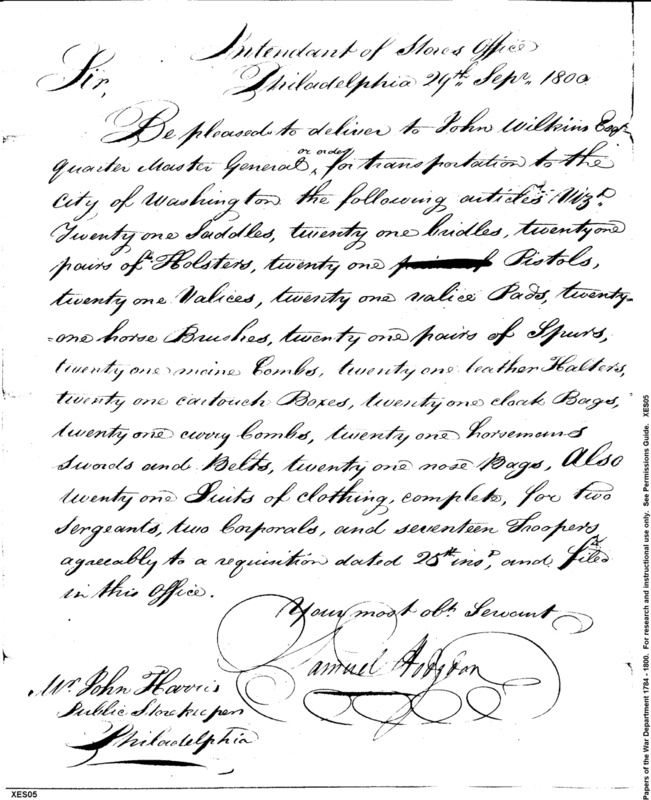 Intendant of Stores Office
Philadelphia 29th Sepr. 1800
Sir,
Be pleased to deliver to John Wilkins Esqr.
quarter Master General, or order, for transportation to the
City of Washington the following articles Vizt.
Twenty one Saddles, twenty one bridles, twenty one
pairs of Holsters, twenty one Pistols,
twenty one Valices, twenty one valice Pads, twenty-
=one horse Brushes, twenty one pairs of Spurs,
twenty one maine Combs, twenty one leather Halters,
twenty one cartouch Boxes, twenty one cloak Bags,
twenty one curry Combs, twenty one horsemans
swords and Belts, twenty one nose Bags, Also
twenty one Suits of clothing, complete, for two
Sergeants, two Corporals, and seventeen Troopers
agreeably to a requisition dated 25th inst, and filed
in this Office.
Your most obt. Servant
Samuel Hodgdon
Mr. John Harris
Public Storekeeper
Philadelphia
XES05
Papers of the War Department 1784 - 1800. For research and instructional use only. See Permissions Guide. XES05